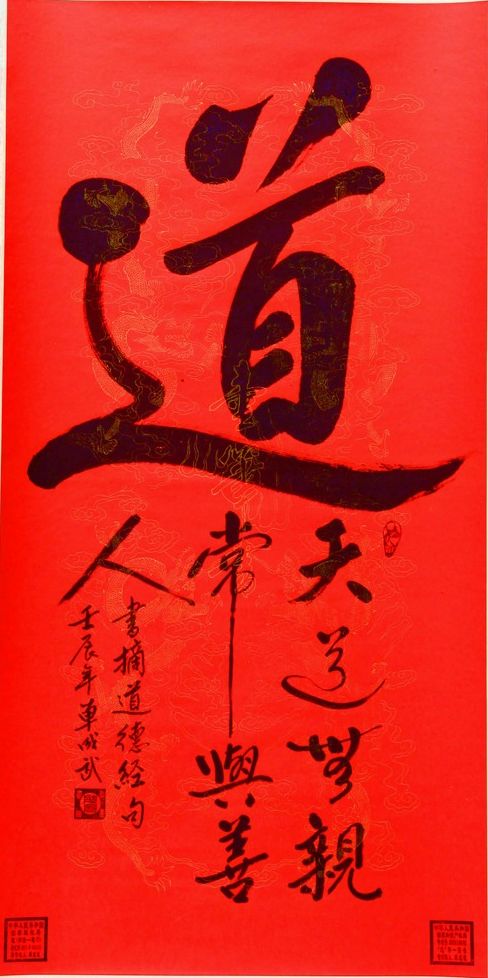 道
天道無親
常與善
人
书摘道德经句
壬辰年车成武